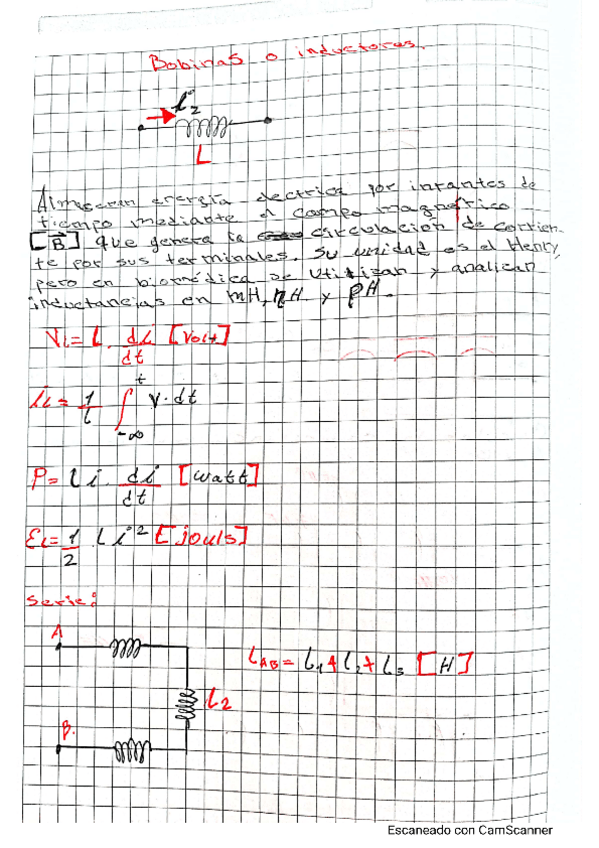 Bobinas o inductores.
i₂
L
Almacenan energía electrica por intantes de
tiempo mediante el campo magnetico
[B⃗] que genera la circulación de corrien-
te por sus terminales. Su unidad es el Henry,
pero en biomédica se utilizan y analizan
inductancias en mH, ηH y pH.
VL = L . di/dt [Volt]
iL = 1/L ∫ -∞ t v·dt
P = L i . di/dt [watt]
EL = 1/2 L i² [jouls]
serie:
A
L2
B.
LAB = L1 + L2 + L3 [H]
Escaneado con CamScanner